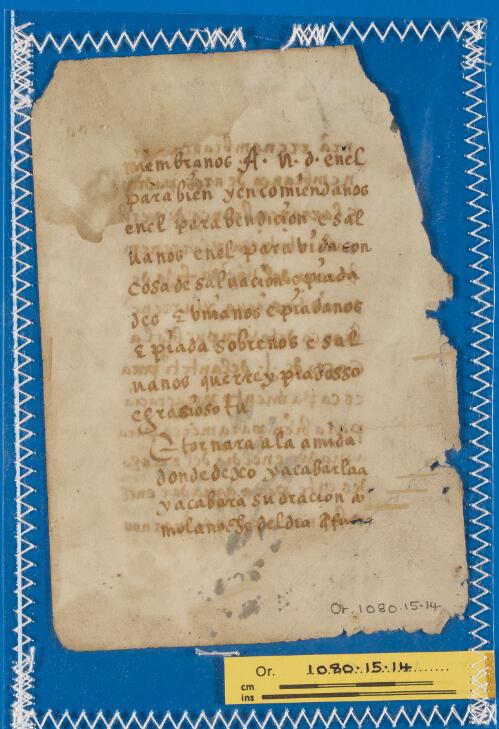 membranos A. N. d. enel
para bien yencomiendanos
enel parabendicion e sal
uanos enel para vida con
cosa de saluacion e piada
des E vmanos e piadanos
E piada sobrenos e sal
uanos querrey piadosso
egrasioso tu
E tornara ala amida
dondedexo yacabarlaa
yacabara su oracion
molanoche del dia
Or. 1080.15.14
Or. 1080.15.14
cm
ins